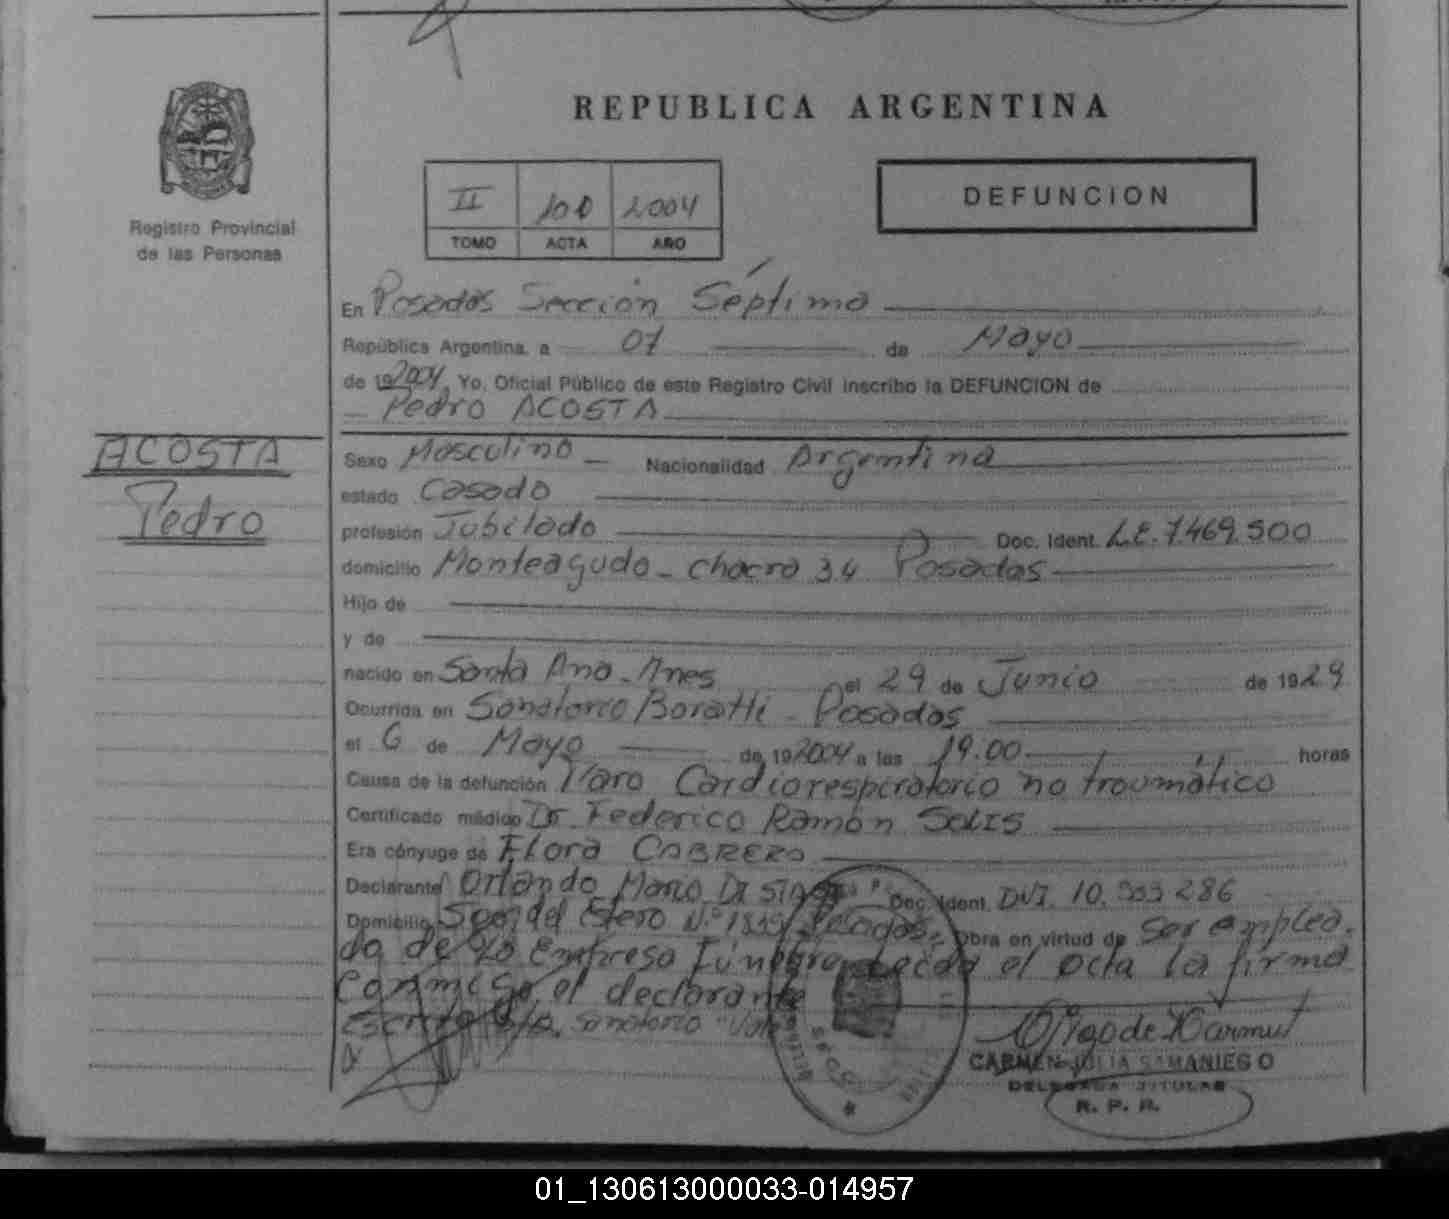 REPUBLICA ARGENTINA
Registro Provincial
de las Personas
II
2004
TOMO ACTA AÑO
DEFUNCION
En Posadas Sección Séptima
República Argentina, a 07 de Mayo
de 19 2004, Yo, Oficial Público de este Registro Civil inscribo la DEFUNCION de
Pedro ACOSTA
ACOSTA
Pedro
Sexo Masculino Nacionalidad Argentina
estado Casado
profesión Jubilado Doc. Ident. L.E. 7.469.500
domicilio Monteagudo - chacra 34 Posadas
Hijo de
y de
nacido en Santa Ana - Mnes el 29 de Junio de 1929
Ocurrida en Sanatorio Boratti - Posadas
el 6 de Mayo de 19 2004 a las 19.00 horas
Causa de la defunción Paro Cardiorespiratorio no traumático
Certificado médico Dr. Federico Ramón SOLIS
Era cónyuge de Flora CABRERA
Declarante Orlando Mario Doc. Ident. DNI. 10. 286
Domicilio Sgo. del Estero N.º Posadas, Obra en virtud de ser emplea-
do de la Empresa Fúnebre el acta la firma
conmigo el declarante
Sanatorio
CARMEN JULIA SAMANIEGO
DELEGADA TITULAR
R. P. P.
01_130613000033-014957